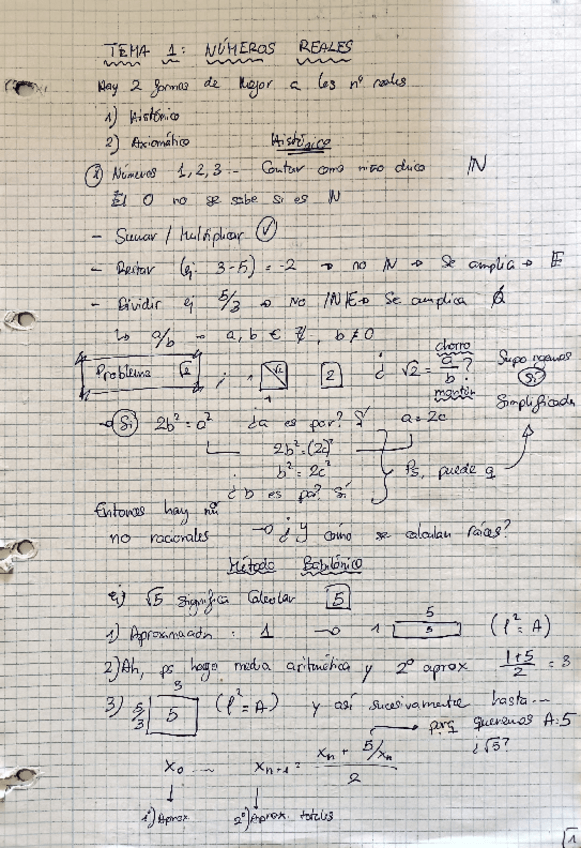 TEMA 1: NÚMEROS REALES
Hay 2 formas de llegar a los nº reales
1) Histórico
2) Axiomático
Histórico
Números 1, 2, 3... Contar como niño chico ℕ
El 0 no se sabe si es ℕ
- Sumar / Multiplicar ✓
- Restar (ej: 3-5) = -2 → no ℕ → Se amplía →
- Dividir ej 5/3 → No Se amplica ℚ
↳ a/b → a, b ∈ ℤ, b ≠ 0
Problema √2 ; 1 √2 1 2 ¿√2 = a/b?
chorro
Supongamos
Sí
Simplificada
→ Sí 2b² = a² ¿a es par? Sí a = 2c
2b² = (2c)²
b² = 2c²
¿b es par? Sí
Ps, puede q
Entonces hay nú
no racionales → ¿Y cómo se calculan raíces?
Método Babilónico
ej) √5 significa Calcular 5
1) Aproximación: 1 → 1 5 5 (l² = A)
2) Ah, ps hago media aritmética y 2º aprox (1+5)/2 = 3
3) 3 5/3 5 (l² = A) y así sucesivamente hasta...
porq queremos A=5
¿√5?
x₀ ... xₙ₊₁ = (xₙ + 5/xₙ)/2
1º) Aprox 2º) Aprox. totales
1